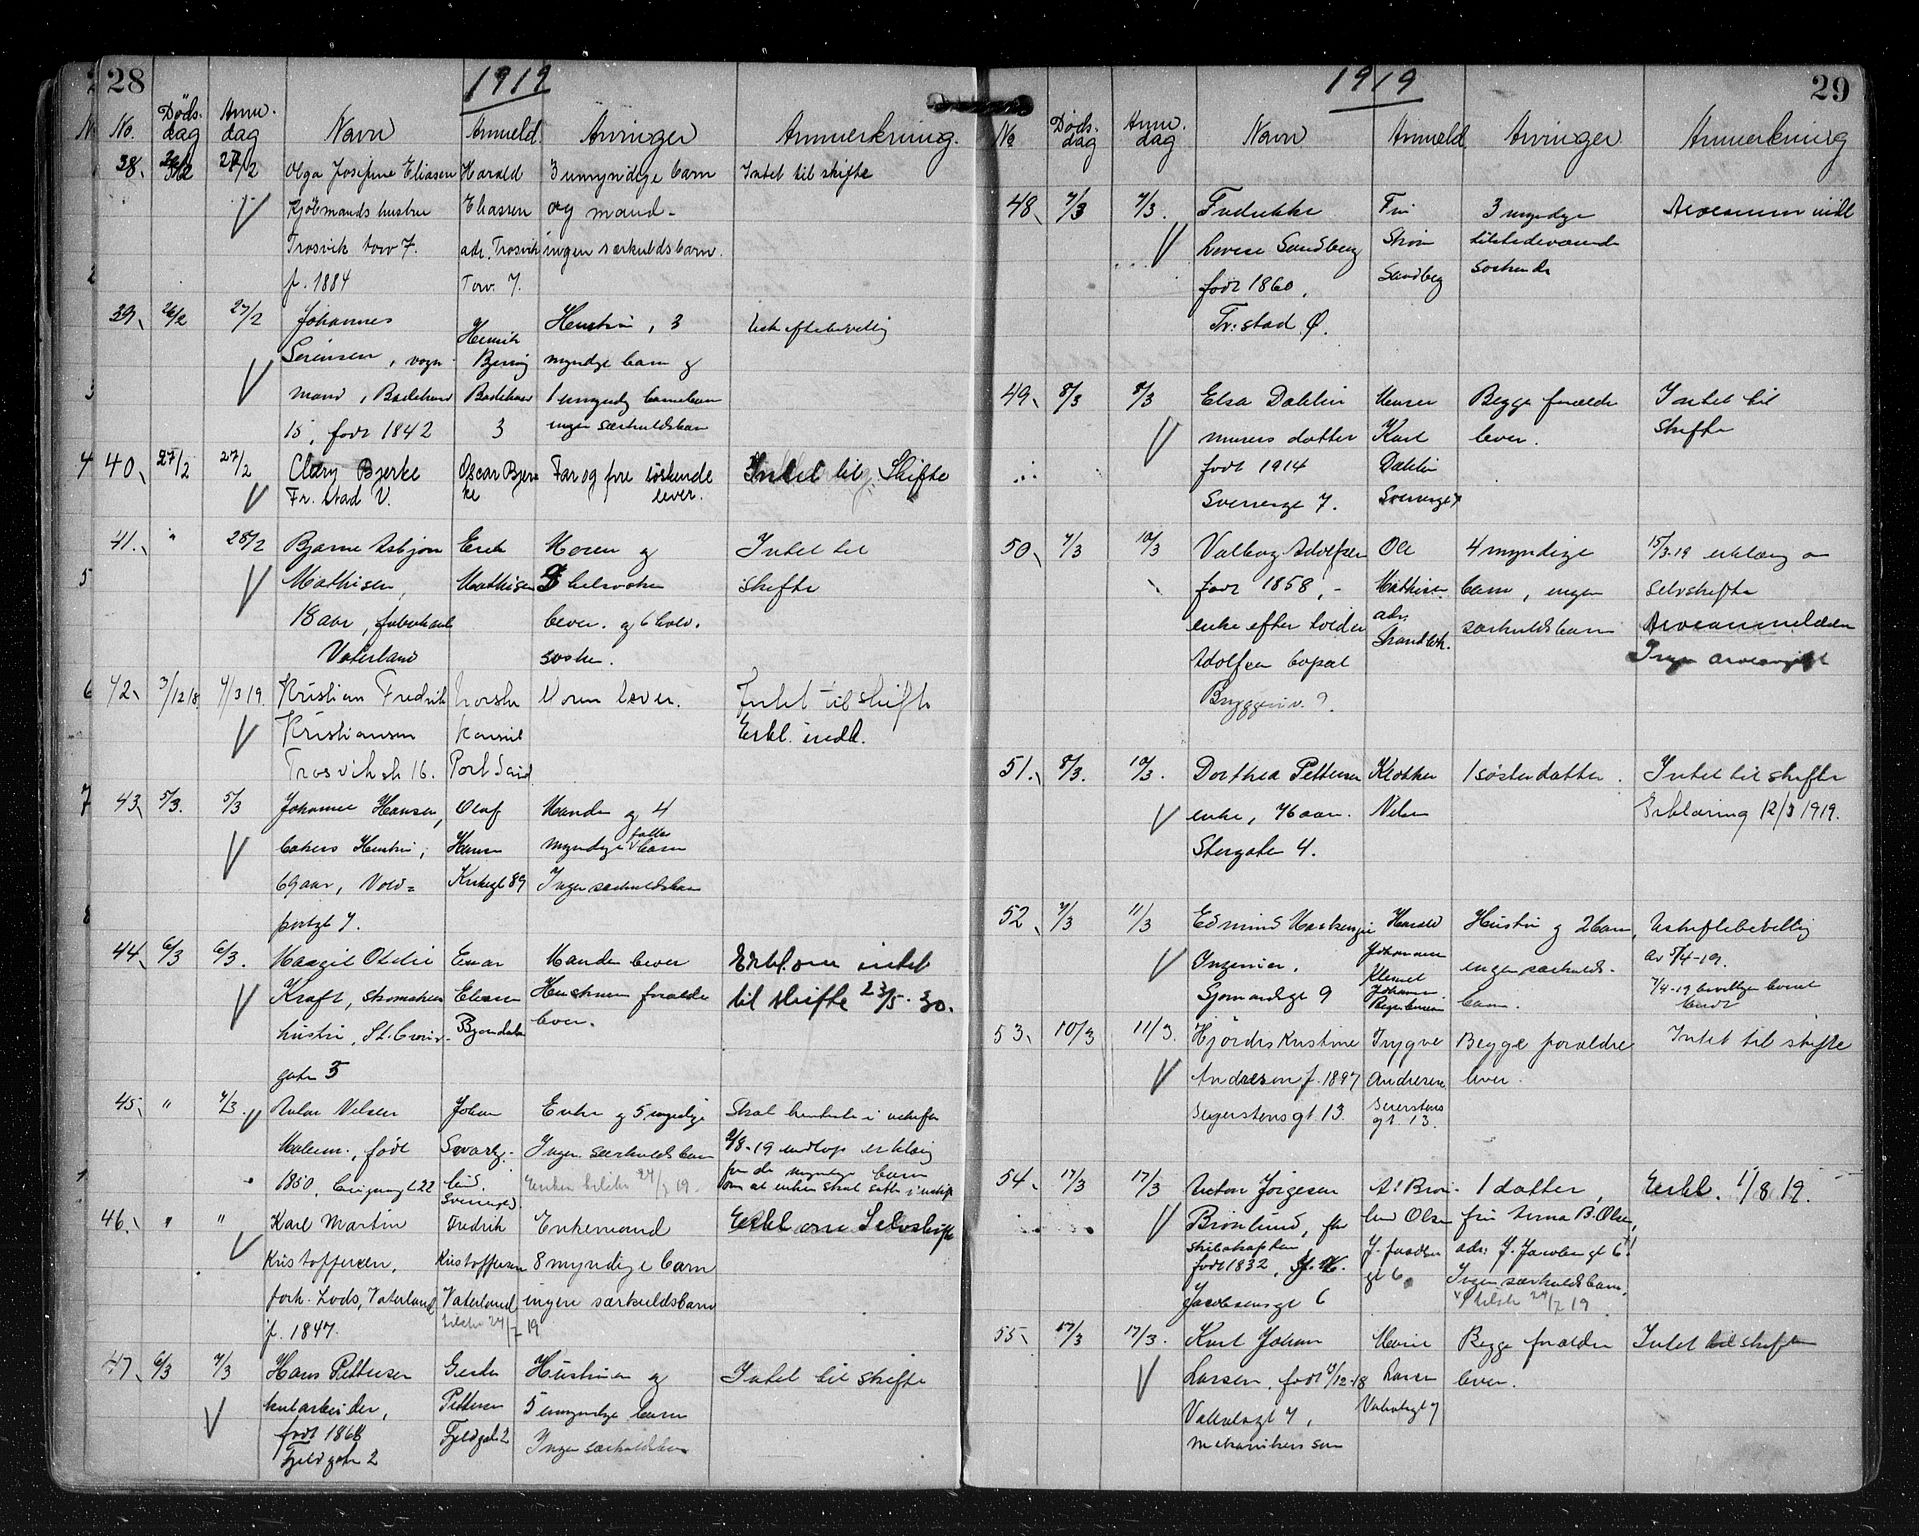 28
1919
No. Dødsdag Anm.dag Navn Anmeld. Arvinger Anmerkning.
38. 26/2 27/2 Olga Josefine Eliasen Harald 3 umyndige barn Intet til skifte
Kjøbmands hustru Eliassen og mand -
Trosvik torv 7. adr. Trosvik ingen særkuldsbarn.
f. 1884 Torv. 7.
39. 26/2 27/2 Johannes Henrik Hustru, 3 Uskiftebevillig
Sørensen, vogn- myndige barn og
mand, 1 umyndig barnebarn
15, født 1842 3 ingen særkuldsbarn
40. 27/2 27/2 Clary Bjerke Oscar Bjer Far og fire søskende Intet til Skifte
Fr. stad V. ke lever.
41. " 28/2 Bjarne Asbjørn Erik Moren og Intet til
Mathisen, Mathisen helsøsken skifte
18 aar, lever. og 6 halv.
Vaterland søsken.
42. 3/12 18. 4/3 19. Kristian Fredrik Norske Moren lever. Intet til skifte
Kristiansen Konsul Erkl. indk.
Trosvik st 16. Port Said
43. 5/3. 5/3 Johanne Hansen, Olaf Manden og 4
bakers Hustru, Hansen myndige fælles barn
69 aar, Vold= Kirkegt 89 Ingen særkuldsbarn
portgt 7.
44. 6/3 6/3. Margit Otelie Einar Manden lever Erkl. om intet
Kraft, skomakers Hustruens forældre til skifte 23/5. 30.
hustru, St. lever.
gate 5
45. " 7/3. Nilsen Johan Enke og 5 myndige
født Svart- Ingen særkuldsbarn 9/8-19 erklæring
1850, 22 lund, Enken tilskr 24/7 19. for de myndige barn
46. " " Karl Martin Fredrik Enkemand Erkl om Selvskifte
Kristoffersen, Kristoffersen 8 myndige barn
forh. Lods, Vaterland Vaterland, ingen særkuldsbarn
f. 1847. tilskr 24/7 19
47. 6/3 7/3 Hans Pettersen Hustruen og Intet til skifte
Pettersen 5 umyndige barn
født 1868 Fjeldgate 2 Ingen særkuldsbarn
Fjeldgate 2
1919
29
No Dødsdag Anm.dag Navn Anmeld. Arvinger Anmerkning
48. 7/3 7/3. Fredrikke Fru 3 myndige Arveanm indk
Lovise Sandberg Strøm tilstedeværende
født 1860, Sandberg søskende
Fr: stad Ø.
49. 8/3 8/3 Elsa Dahlin Murer Begge forældre Intet til
murers datter Karl lever. skifte
født 1914 Dahlin
Sverresgt 7. Sverresgt 7
50. 7/3 10/3 Valborg Adolfsen Ole 4 myndige 15/3-19 erklæring om
født 1858, - Mathisen barn, ingen selvskifte
enke efter tolder adr. særkuldsbarn Arveanmeldelse
Adolfsen Ingen arveavgift
51. 8/3. 10/3. Dorthea Pettersen Klokker 1 søsterdatter. Intet til skifte
enke, 76 aar. Nilsen Erklæring 12/3 1919.
Storgaten 4.
52 7/3 11/3 Edmund Harald Hustru og 2 barn, Uskiftebevillig
Ingeniør, Johannesen ingen særkulds- av 5/4-19.
Sjømandsgt 9 barn. 7/4-19
53. 10/3 11/3. Hjørdis Kristine Trygve Begge forældre Intet til skifte
Andresen f. 1897 Andresen lever.
Seyerstensgt. 13. Seierstens
gt. 13.
54. 17/3 17/3 Anton Jørgesen 1 datter, Erkl. 1/8 19.
Brønlund, fhv Olsen fru Anna B. Olsen,
skibskaptein, adr: J. Jacobsengt 6!
født 1832, gt 6. Ingen særkuldsbarn.
Jacobsensgt 6 tilskr 24/7 19.
55. 17/3 17/3. Karl Johan Marie Begge forældre Intet til skifte
Larsen, født 12-18 Larsen lever.
mekanikers søn